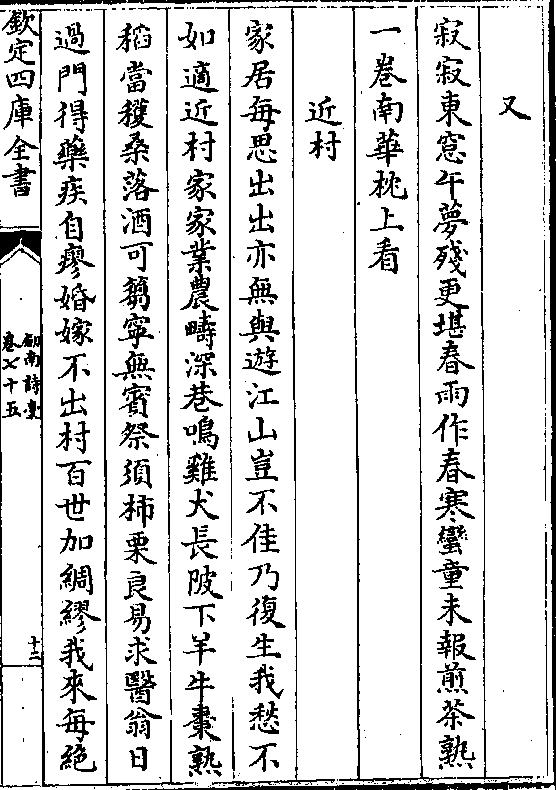 又
寂寂東窓午夢殘更堪春雨作春寒蠻童未報煎茶熟
一卷南華枕上看
近村
家居每思出出亦無與遊江山豈不佳乃復生我愁不
如適近村家家業農疇深巷鳴雞犬長陂下羊牛棗熟
稻當穫桑落酒可篘寧無賓祭須柿栗良易求醫翁日
過門得藥疾自瘳婚嫁不出村百世加綢繆我來每絶
欽定四庫全書
劍南詩稾
卷七十五
十二